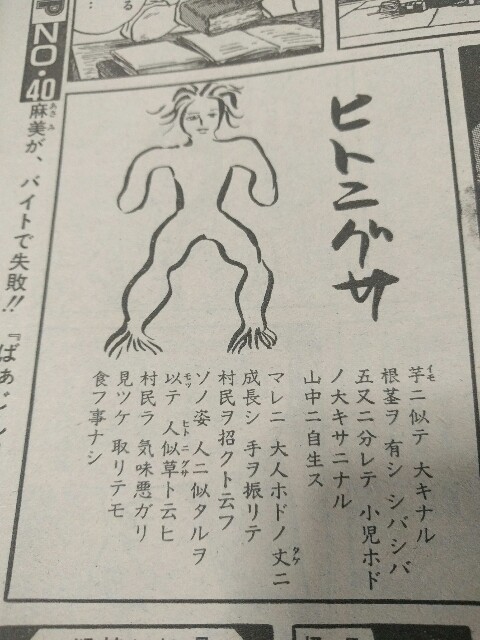 る
…
NO.40
麻美が、バイトで失敗!!『ばぁじ
あさみ
ヒトニグサ
芋ニ似テ 大キナル
イモ
根茎ヲ 有シ シバシバ
五又ニ分レテ 小児ホド
ノ大キサニナル
山中ニ自生ス
マレニ 大人ホドノ丈ニ
タケ
成長シ 手ヲ振リテ
村民ヲ招クト云フ
ソノ姿 人ニ似タルヲ
以テ 人似草ト云ヒ
モッ
ヒトニグサ
村民ラ 気味悪ガリ
見ツケ 取リテモ
食フ事ナシ